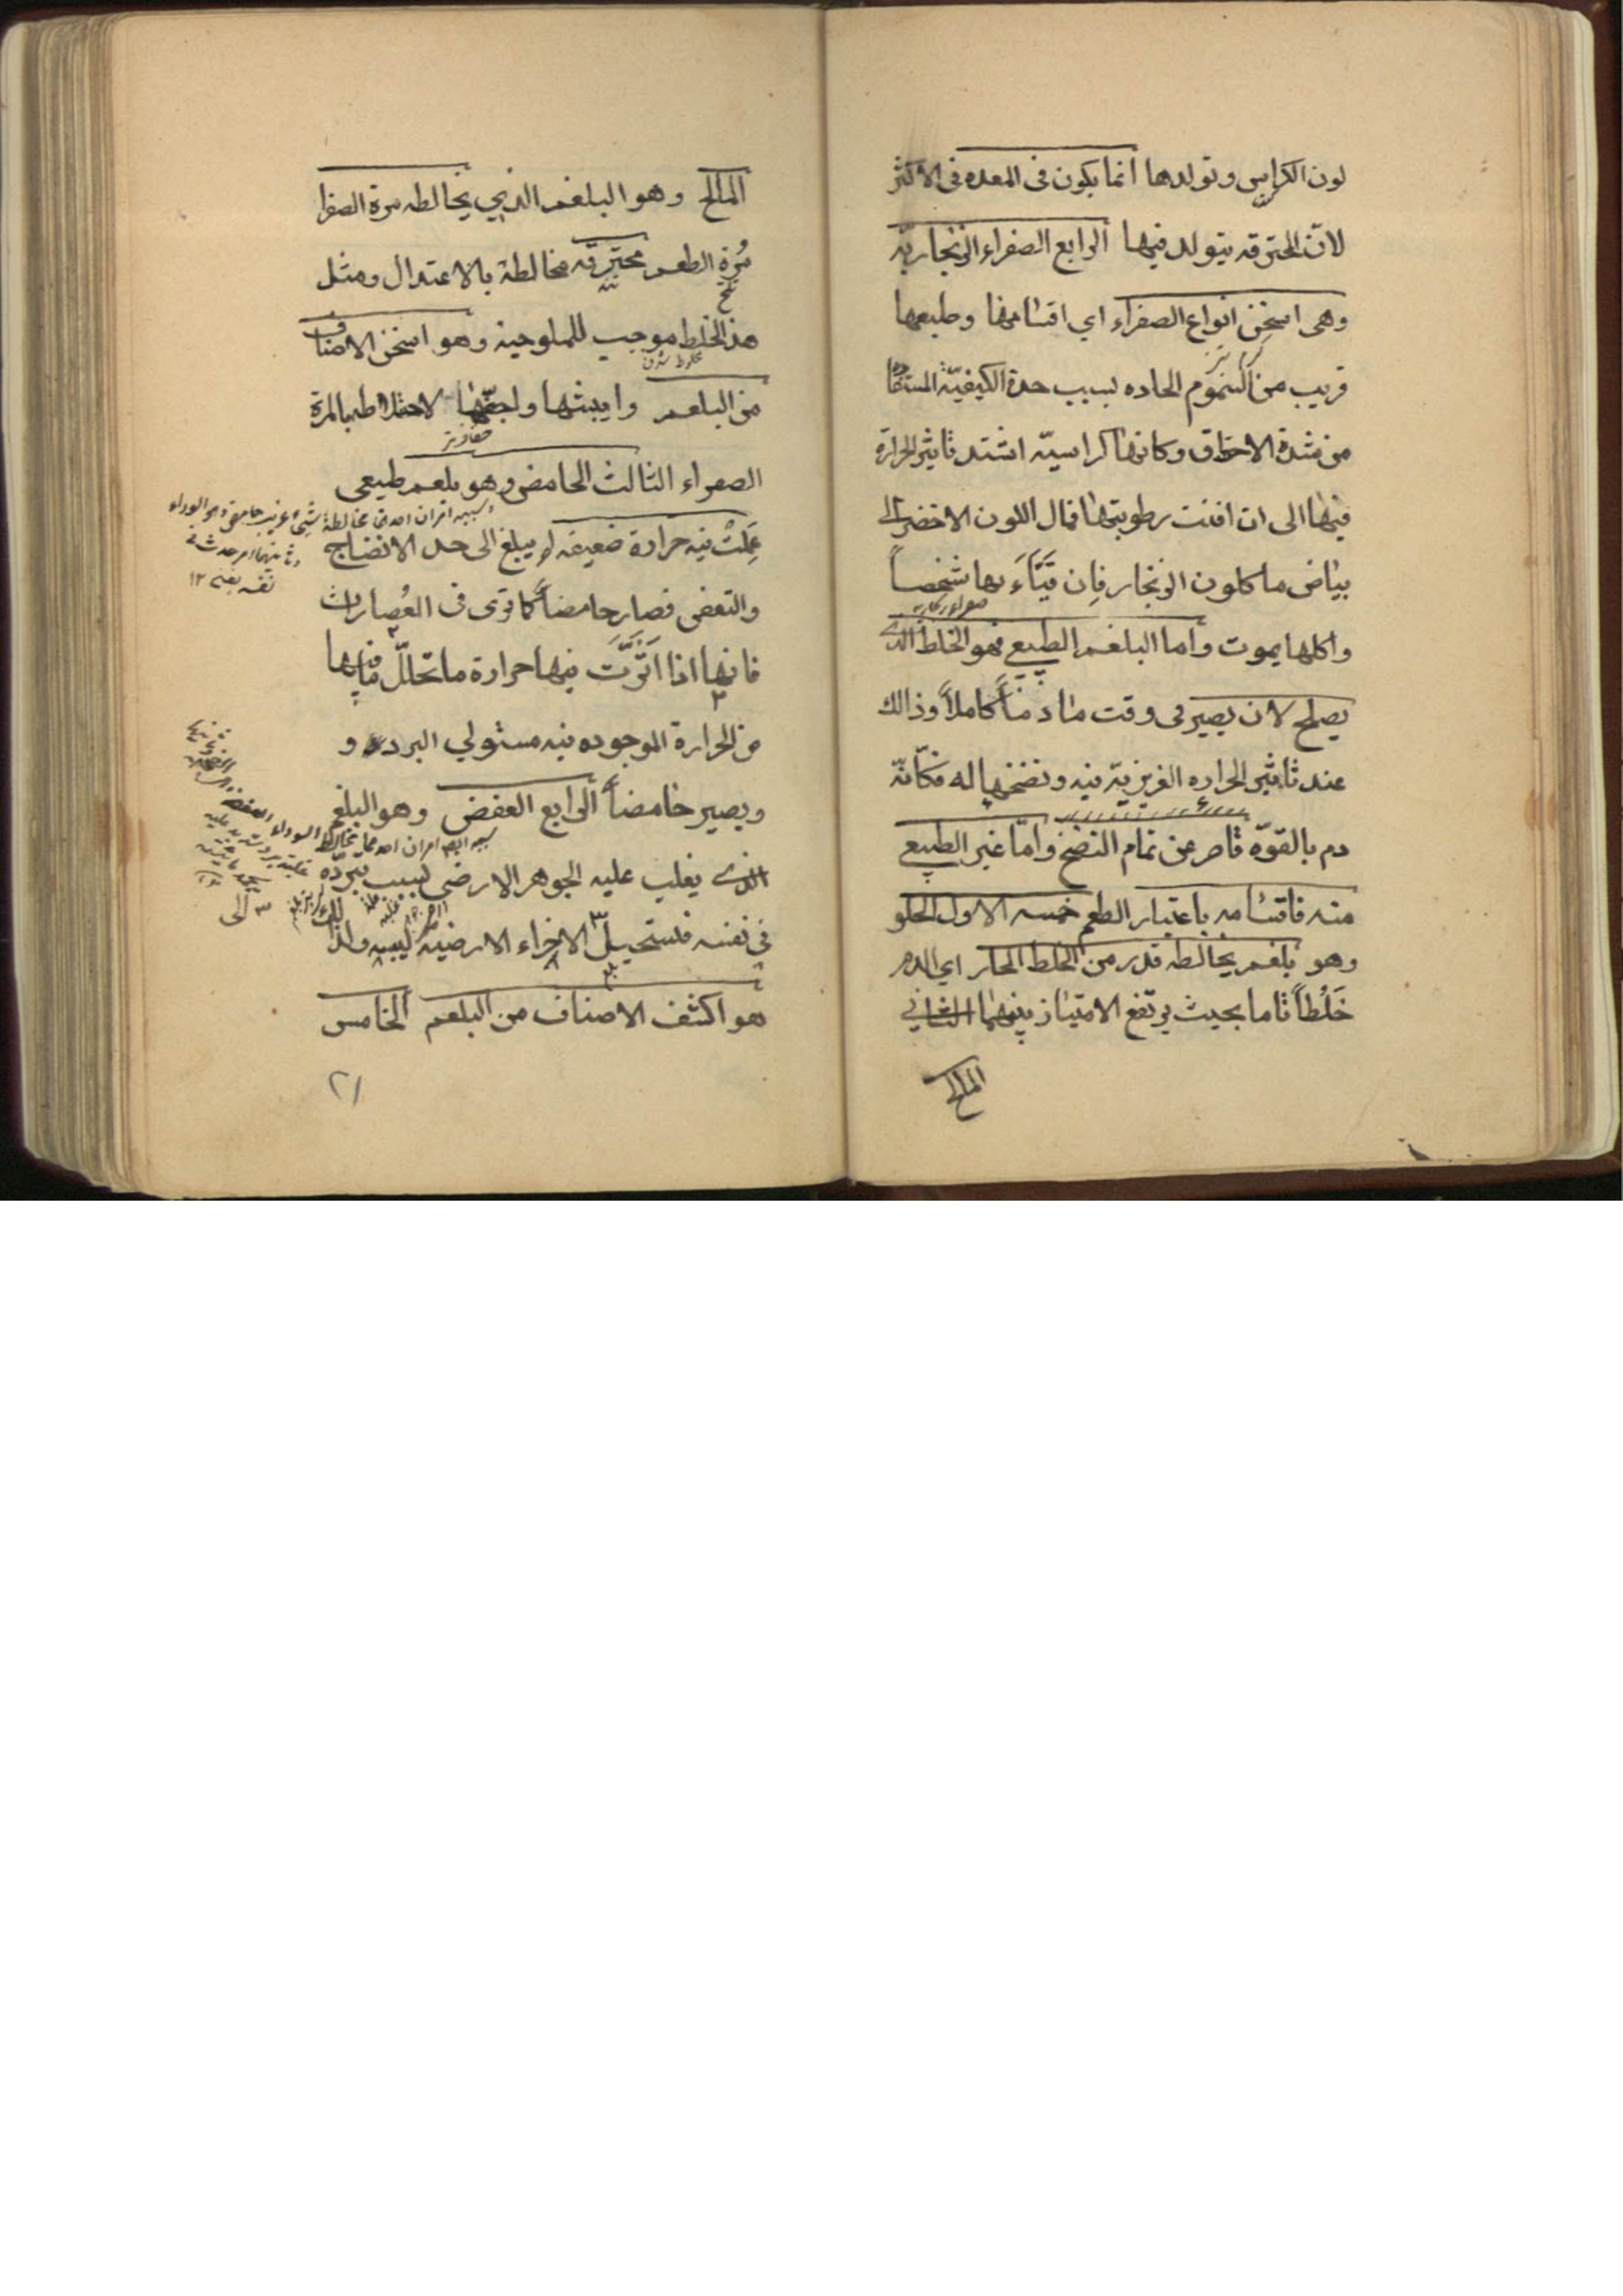 لون الكراس وتولدها انما يكون فى المعده فى الاكثر
لانّ المحترقه يتولد فيها الرابع الصفراء الزنجاريّه
وهى اسخن انواع الصفراء اي اقسامها وطبعها
قريب من السموم الحاده بسبب حدة الكيفيّة المستفاده
من شدة الاحتراق وكانها كراسيّه اشتد تاثير الحرارة
فيها الى ان افنت رطوبتها فمال اللون الاخضر الى
بياض ما كلون الزنجار فان قَيَّاءَ بها شخصاً
واكلها يموت واما البلغم الطبيعي فهو الخلط الذى
يصلح لان يصير فى وقت ما دماً كاملاً وذالك
عند تاثير الحراره الغريزيّة فيه ونضخها له فكانّه
دم بالقوّة قاصر عن تمام النضخ وامّا غير الطبيعي
منه فاقسامه باعتبار الطعم خمسه الاول الحلو
وهو بلغم يخالطه قدر من الخلط الحار اي الدم
خَلْطاً تاما بحيث يرتفع الامتياز بينهما الثاني
المالح
المالح وهو البلغم الذي يخالطه مرة الصفرا
مُرّة الطعم محترقه مخالطة بالاعتدال ومثل
هذ الخلط موجب للملوحية وهو اسخن الاصناف
من البلغم وايبسها واجفّها لاختلاطها بالمرة
الصفراء الثالث الحامض وهو بلغم طبيعي
عَمِلَتْ فيه حرارة ضعيفه لم يبلغ الى حد الانضاج
والتعفن فصار حامضاً كما ترى فى العُصارات
فانها اذا اَثَّرَت فيها حرارة ما تحلّل ما فيها
من الحرارة الموجوده فيه مستولي البرد و
ويصير حامضاً الرابع العفض وهو البلغم
الذى يغلب عليه الجوهر الارضى بسبب تبرّده
فى نفسه فتستحيل الاجزاء الارضية ليبسه ولذالك
هو اكثف الاصناف من البلغم الخامس
٢١